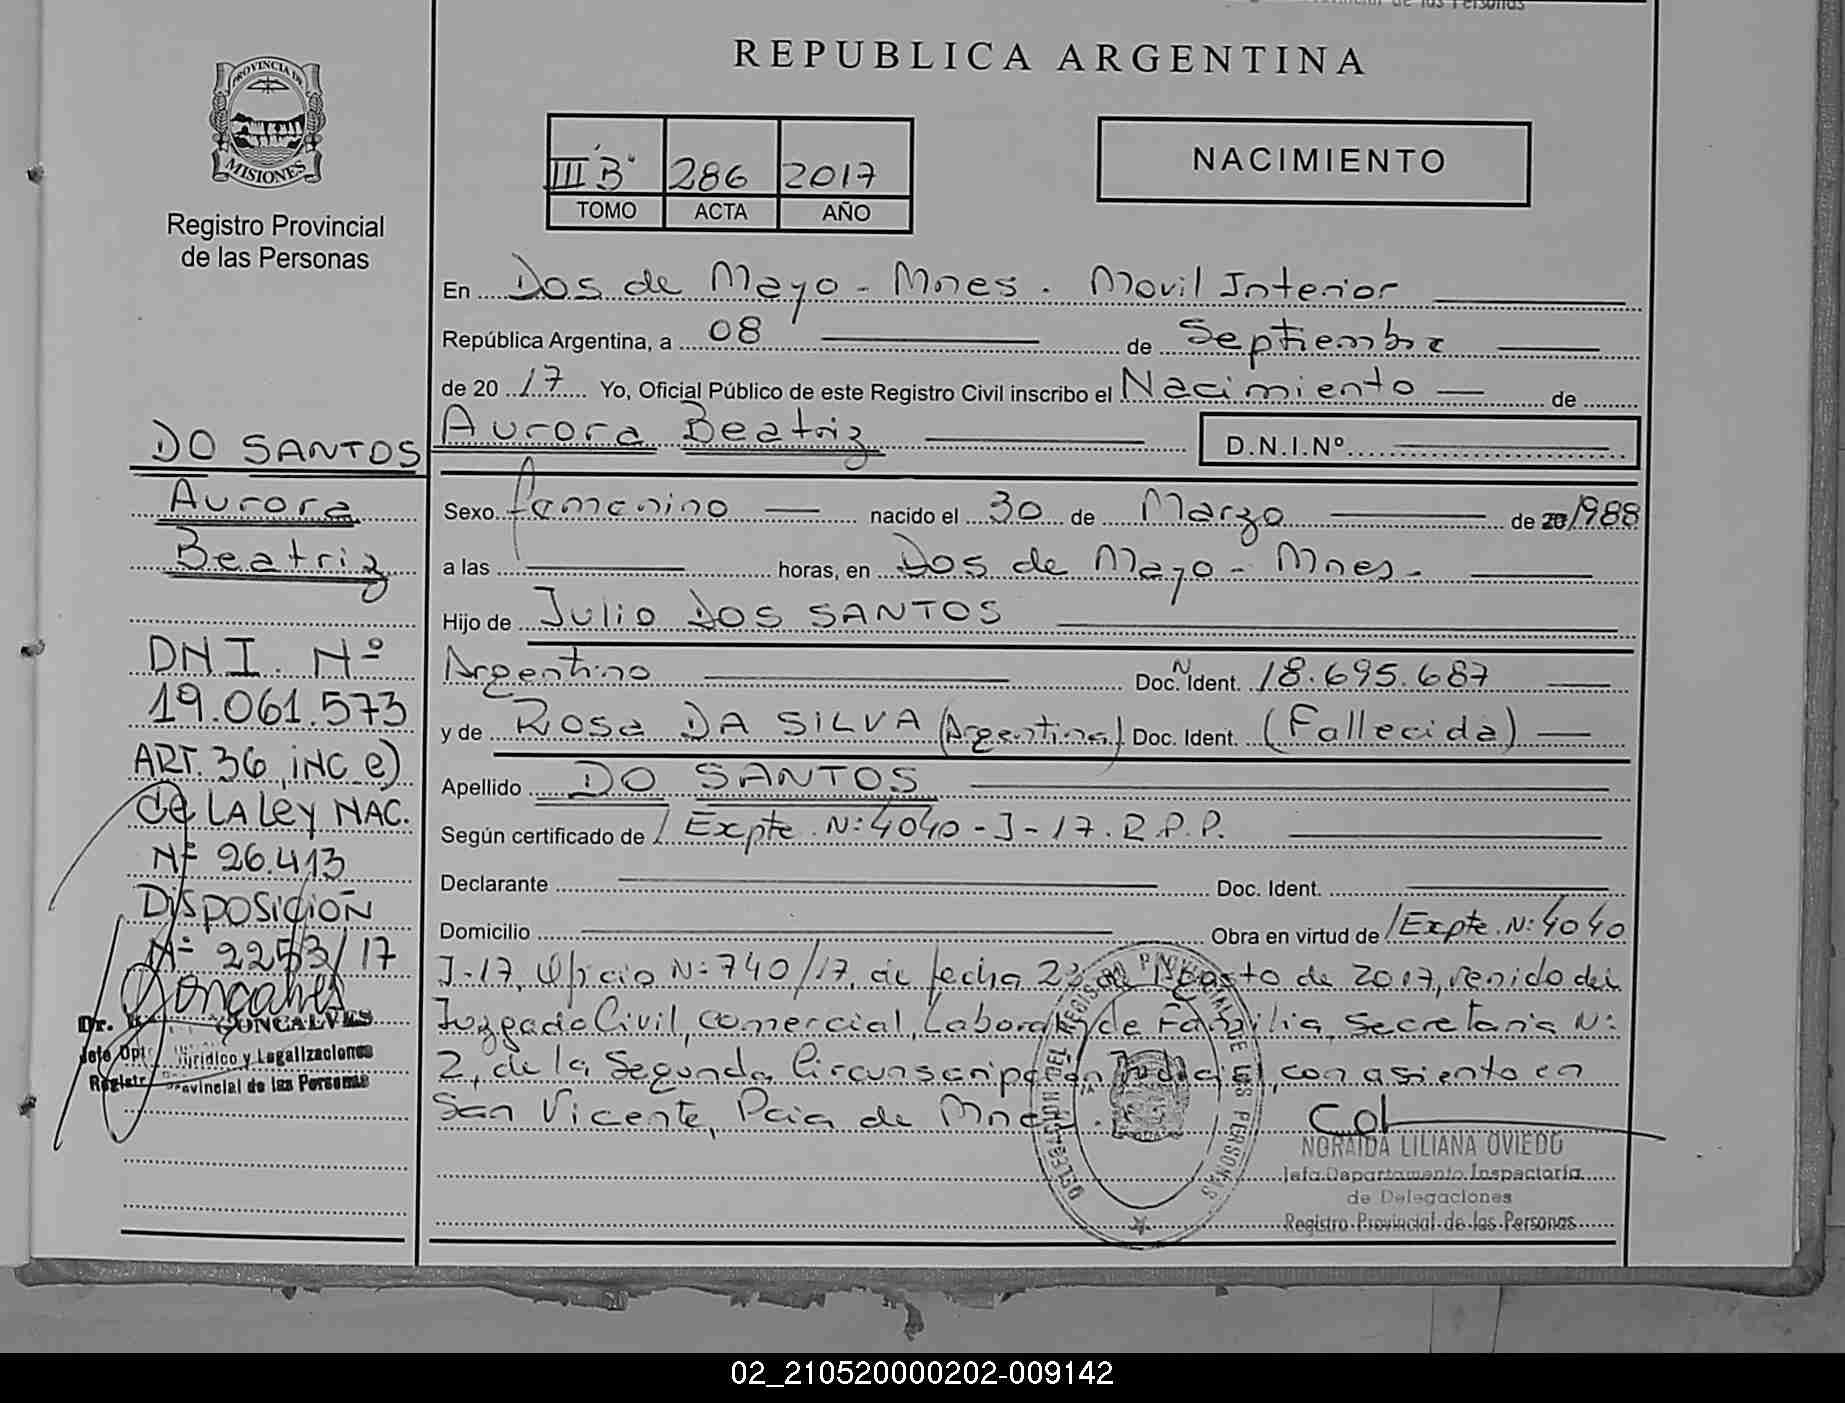 REPUBLICA ARGENTINA
PROVINCIA DE
MISIONES
Registro Provincial
de las Personas
III "B" 286 2017
TOMO ACTA AÑO
NACIMIENTO
En Dos de Mayo - Mnes. Movil Interior
República Argentina, a 08 de Septiembre
de 2017 Yo, Oficial Público de este Registro Civil inscribo el Nacimiento de
Aurora Beatriz D.N.I.Nº
Sexo femenino nacido el 30 de Marzo de 20/1988
a las horas, en Dos de Mayo - Mnes.
Hijo de Julio DOS SANTOS
Argentino Doc. N Ident. 18.695.687
y de Rosa DA SILVA (Argentina) Doc. Ident. (Fallecida)
Apellido DO SANTOS
Según certificado de / Expte. Nº 4040-J-17. R.P.P.
Declarante Doc. Ident.
Domicilio Obra en virtud de /Expte. Nº 4040
J-17, Oficio Nº 740/17, de fecha 23 de Agosto de 2017, venido del
Juzgado Civil, Comercial, Laboral y de Familia, Secretaria Nº
2, de la Segunda Circunscripción Judicial, con asiento en
San Vicente, Pcia de Mnes.
DO SANTOS
Aurora
Beatriz
DNI. Nº
19.061.573
ART. 36, iNC e)
de LA Ley NAC.
Nº 26.413
DISPOSICIÓN
Nº 2253/17
Dr. GONCALVES
Jefe Dpto. Jurídico y Legalizaciones
Registro Provincial de las Personas
NORAIDA LILIANA OVIEDO
Jefa Departamento Inspectoría
de Delegaciones
Registro Provincial de las Personas
02_210520000202-009142